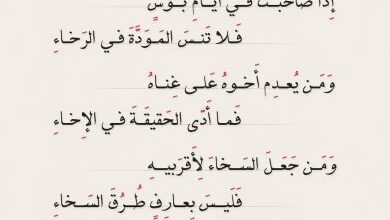 إِذا صاحَبتَ في أَيّامِ بُؤسٍ
فَلا تَنسَ المَوَدَّةَ في الرَخاءِ
وَمَن يُعدِم أَخوهُ عَلى غِناهُ
فَما أَدّى الحَقيقَةَ في الإِخاءِ
وَمَن جَعَلَ السَخاءَ لِأَقرَبيهِ
فَلَيسَ بِعارِفٍ طُرُقَ السَخاءِ